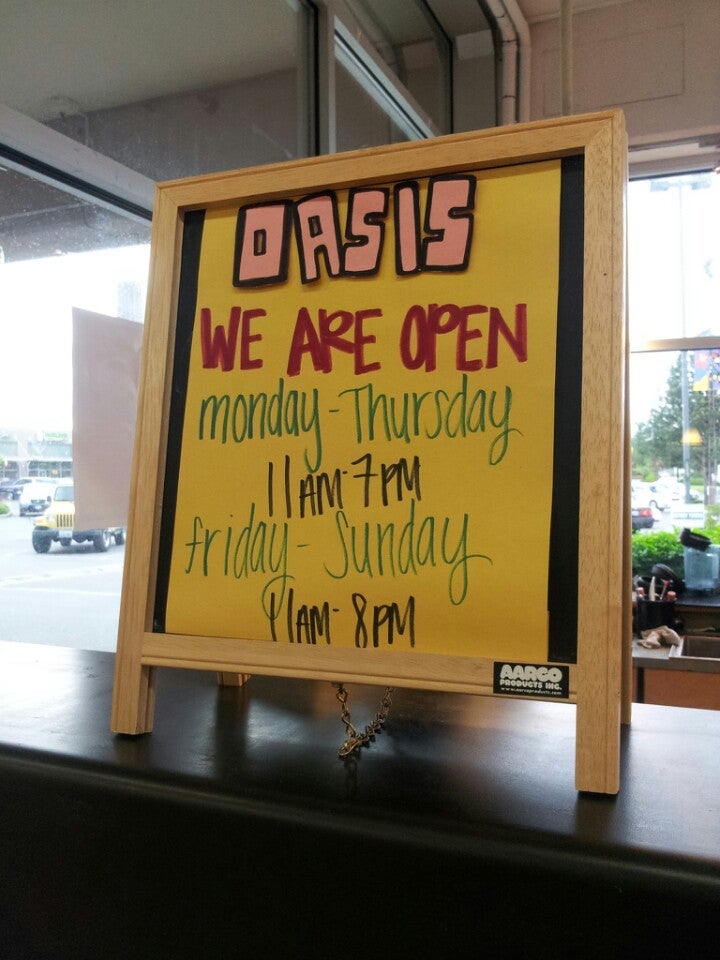 OASIS
WE ARE OPEN
monday - Thursday
11AM - 7PM
friday - Sunday
11AM - 8PM
AARCO
PRODUCTS INC.
www.aarcoproducts.com